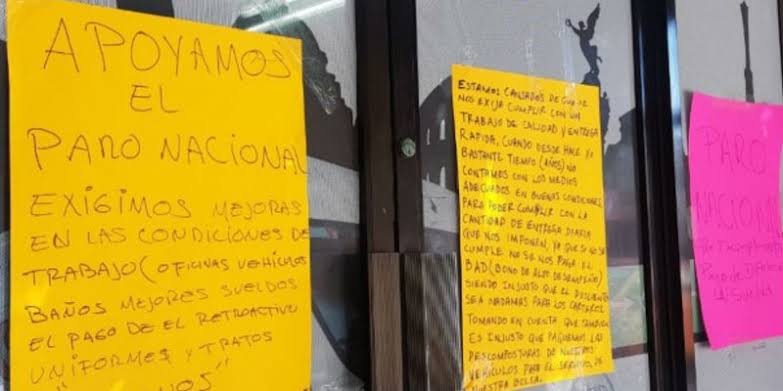 APOYAMOS
EL
PARO NACIONAL
EXIGIMOS MEJORAS
EN LAS CONDICIONES DE
TRABAJO (OFICINAS VEHICULOS
BAÑOS MEJORES SUELDOS
EL PAGO DE EL RETROACTIVO
UNIFORMES Y TRATOS
ESTAMOS CANSADOS DE QUE SE
NOS EXIJA CUMPLIR CON UN
TRABAJO DE CALIDAD Y ENTREGA
RAPIDA, CUANDO DESDE HACE YA
BASTANTE TIEMPO (AÑOS) NO
CONTAMOS CON LOS MEDIOS
ADECUADOS EN BUENAS CONDICIONES
PARA PODER CUMPLIR CON LA
CANTIDAD DE ENTREGA DIARIA
QUE NOS IMPONEN, YA QUE SI NO SE
CUMPLE NO SE NOS PAGA EL
BAD (BONO DE ALTO DESEMPEÑO)
SIENDO INJUSTO QUE EL DESCUENTO
SEA NADAMAS PARA LOS CARTEROS
TOMANDO EN CUENTA QUE TAMBIEN
ES INJUSTO QUE PAGUEMOS LAS
DESCOMPOSTURAS DE NUESTROS
VEHICULOS PARA EL SERVICIO, DE
NUESTRA BOLSA.
PARO
NACIONAL